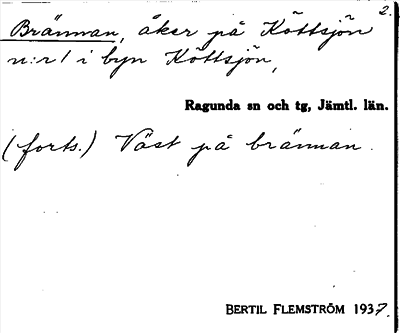 2.
Brännan, åker på Köttsjön
n:r 1 i byn Köttsjön,
Ragunda sn och tg, Jämtl. län.
(forts.) Väst på brännan.
BERTIL FLEMSTRÖM 1937.